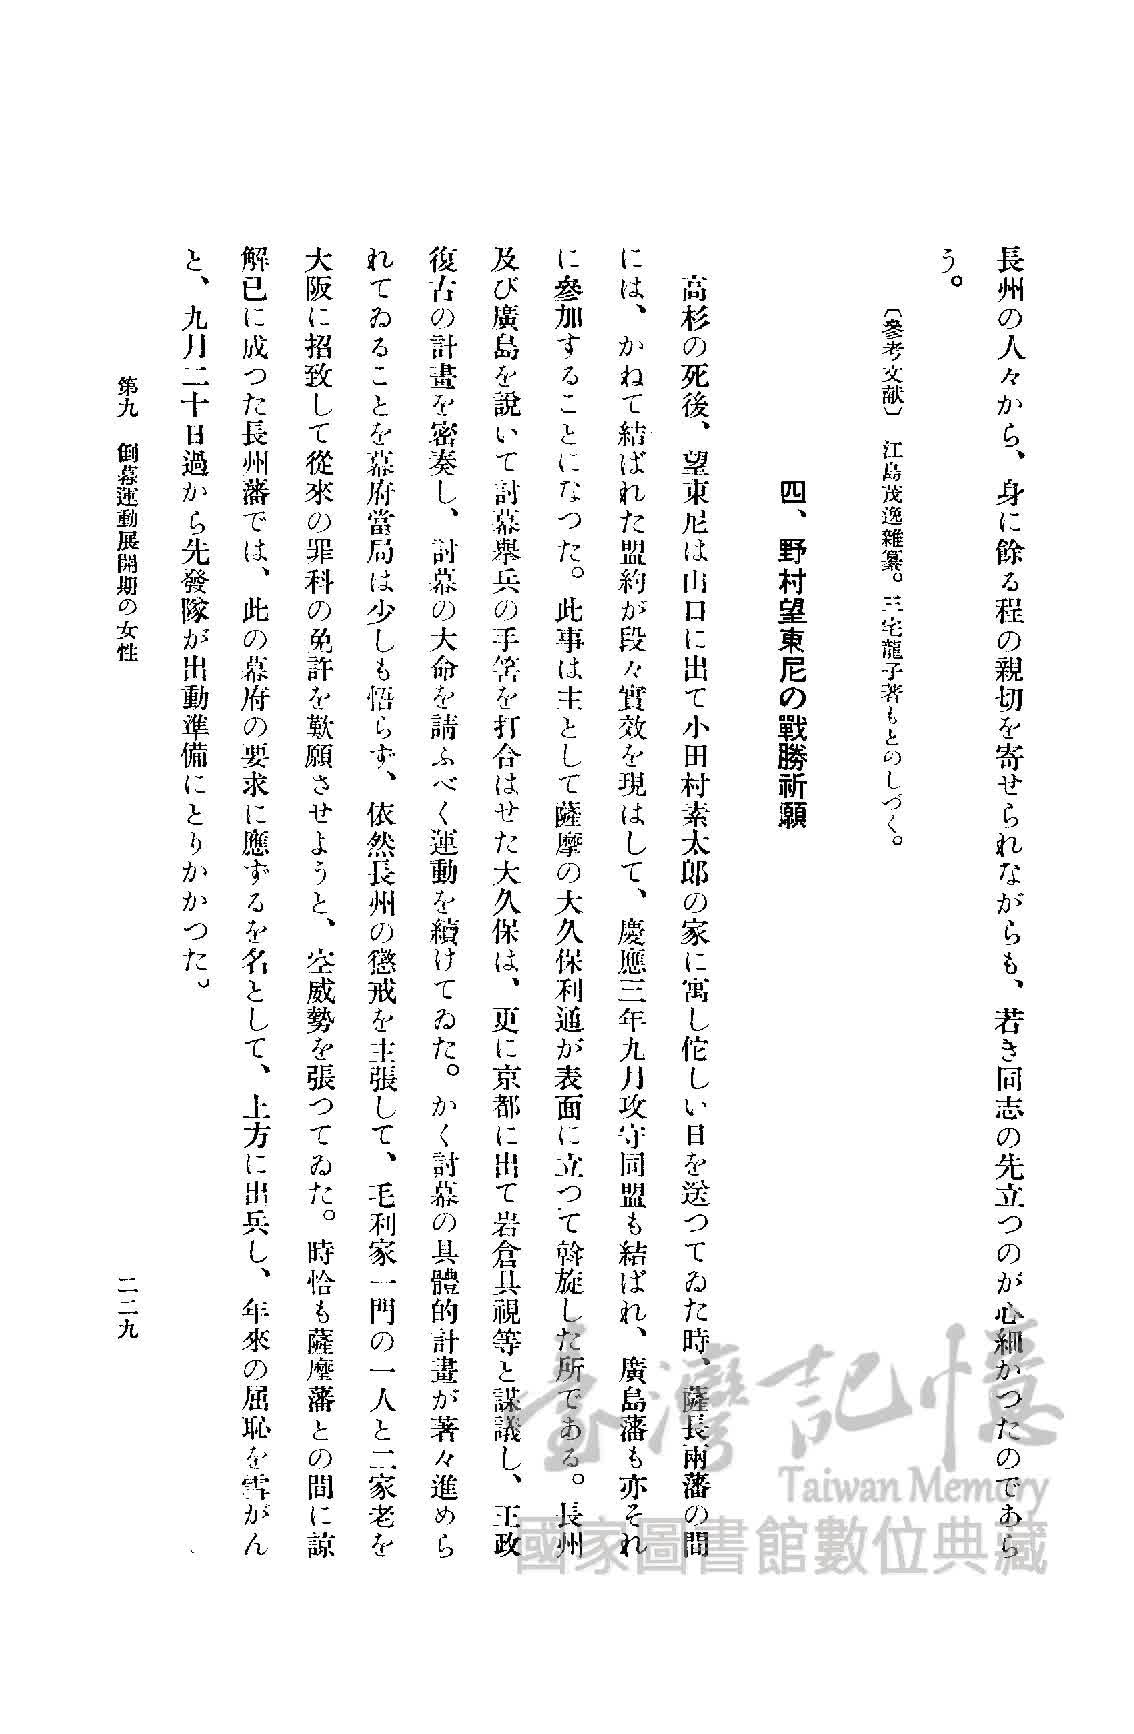 長州の人々から、身に餘る程の親切を寄せられながらも、若き同志の先立つのが心細かつたのであら
う。
〔參考文献〕 江島茂逸雜纂。三宅龍子著もとのしづく。
四、野村望東尼の戰勝祈願
高杉の死後、望東尼は山口に出て小田村素太郎の家に寓し佗しい日を送つてゐた時、薩長兩藩の間
には、かねて結ばれた盟約が段々實效を現はして、慶應三年九月攻守同盟も結ばれ、廣島藩も亦それ
に參加することになつた。此事は主として薩摩の大久保利通が表面に立つて斡旋した所である。長州
及び廣島を說いて討幕擧兵の手筈を打合はせた大久保は、更に京都に出て岩倉具視等と謀議し、王政
復古の計畫を密奏し、討幕の大命を請ふべく運動を續けてゐた。かく討幕の具體的計畫が著々進めら
れてゐることを幕府當局は少しも悟らず、依然長州の懲戒を主張して、毛利家一門の一人と二家老を
大阪に招致して從來の罪科の免許を歎願させようと、空威勢を張つてゐた。時恰も薩摩藩との間に諒
解已に成つた長州藩では、此の幕府の要求に應ずるを名として、上方に出兵し、年來の屈恥を雪がん
と、九月二十日過から先發隊が出動準備にとりかかつた。
第九 倒幕運動展開期の女性
二二九
臺灣記憶
Taiwan Memory
國家圖書館數位典藏